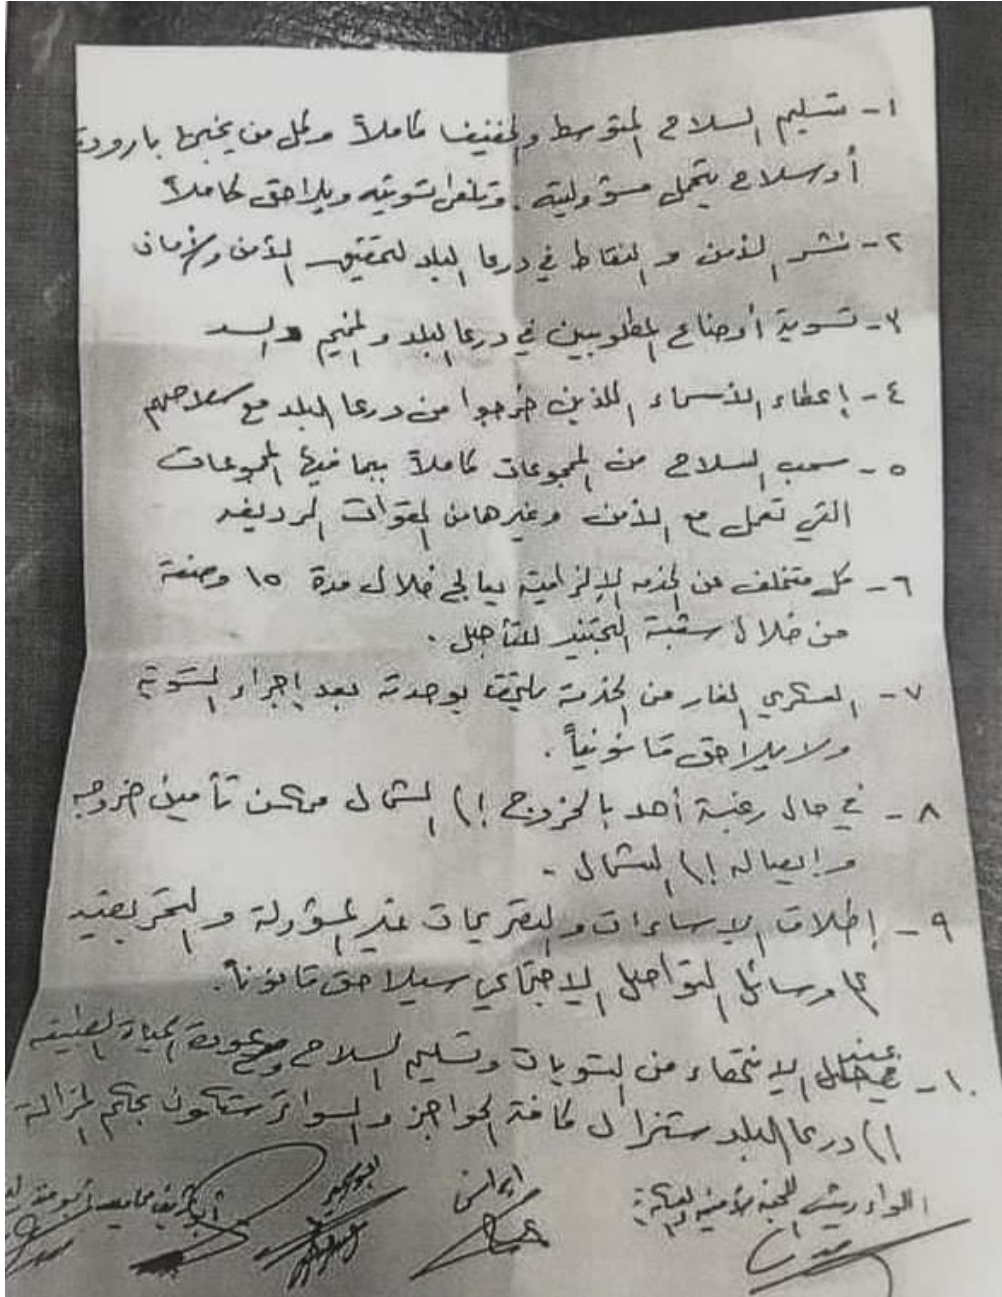 ١- تسليم السلاح المتوسط والخفيف كاملاً وكل من يخبئ بارودة
أو سلاح يتحمل مسؤوليته. وتلغى تسويته ويلاحق كاملاً
٢- نشر الأمن و النقاط في درعا البلد لتحقيق الأمن والأمان
٣- تسوية أوضاع المطلوبين في درعا البلد والمخيم والسد
٤- إعطاء الأسماء الذين خرجوا من درعا البلد مع سلاحهم
٥- سحب السلاح من المجموعات كاملاً بما فيها المجموعات
التي تعمل مع الأمن وغيرها من القوات الرديفه
٦- كل متخلف عن الخدمه الإلزامية يعالج خلال مدة ١٥ وصفه
من خلال شعبة التجنيد للتأجيل.
٧- العسكري الفار من الخدمة يلتحق بوحدته بعد إجراء التسوية
ولا يلاحق قانونياً.
٨- في حال رغبة أحد بالخروج إلى الشمال ممكن تأمين خروجه
وإيصاله إلى الشمال.
٩- إطلاق الإساءات والتصريحات غير المسؤولة والتحريضيه
على وسائل التواصل الإجتماعي سيلاحق قانوناً.
١٠- الإنتهاء من التسويات وتسليم السلاح وعودة الحياة الطبيعيه
إلى درعا البلد ستزال كافة الحواجز والسواتر ستكون بحكم المزالة
اللواء رئيس اللجنة الأمنية